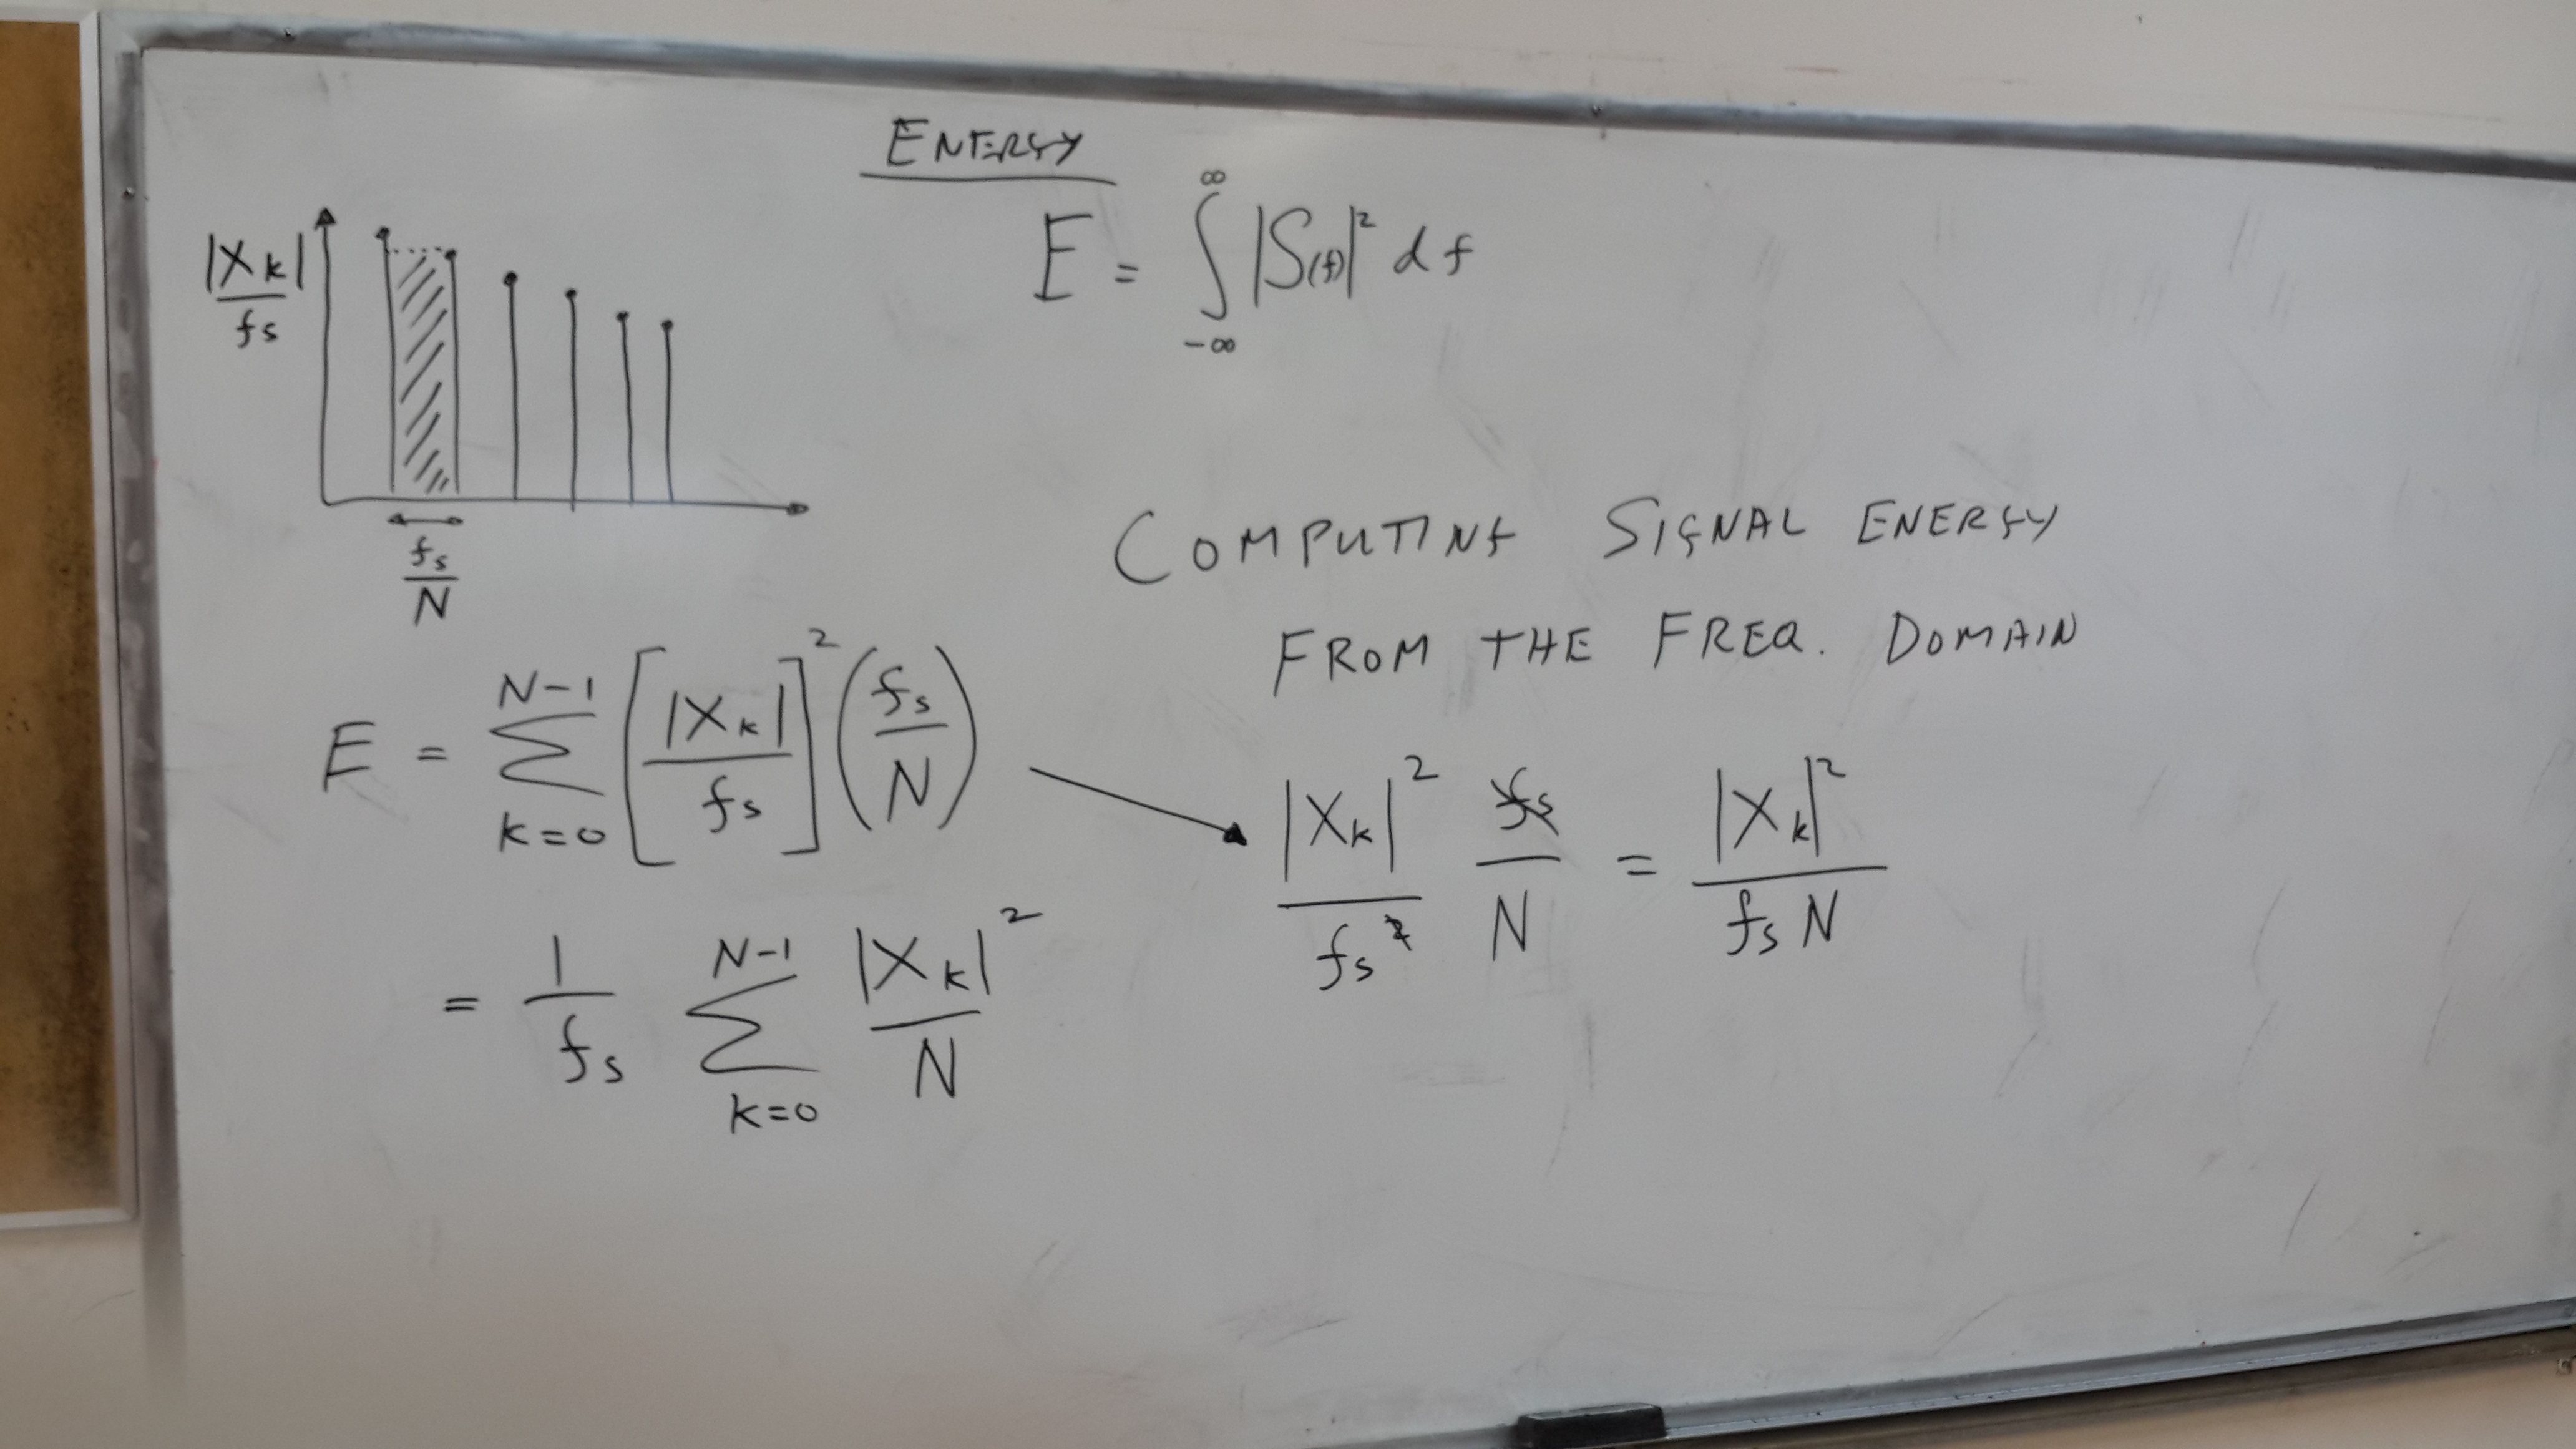 ENERGY
E = ∫_{-∞}^{∞} |S(f)|² df
|Xk| / fs
fs / N
COMPUTING SIGNAL ENERGY
FROM THE FREQ. DOMAIN
E = Σ_{k=0}^{N-1} [|Xk| / fs]² (fs / N)
|Xk|² / fs² fs / N = |Xk|² / fs N
= 1 / fs Σ_{k=0}^{N-1} |Xk|² / N